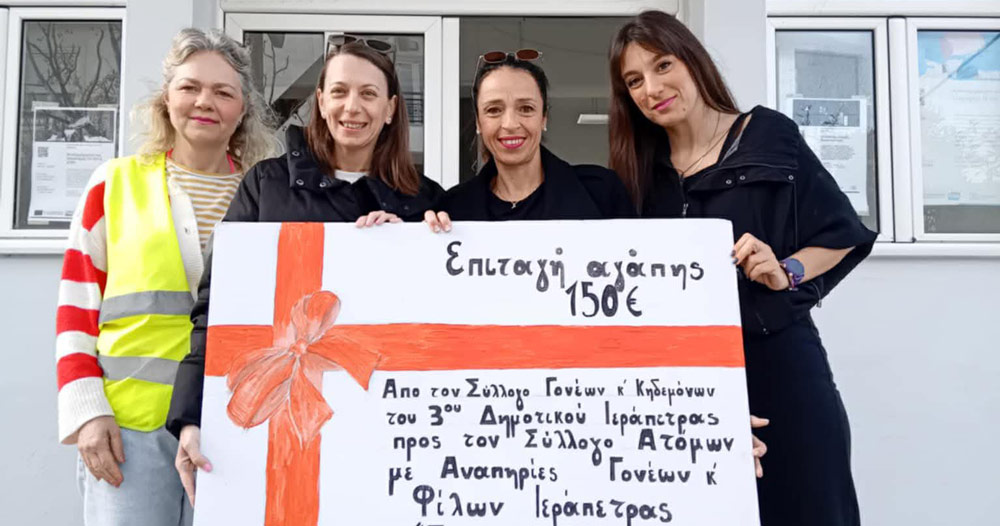 Επιταγή αγάπης
150€
Απο τον Σύλλογο Γονέων κ' Κηδεμόνων
του 3ου Δημοτικού Ιεράπετρας
προς τον Σύλλογο Ατόμων
με Αναπηρίες Γονέων κ'
Φίλων Ιεράπετρας